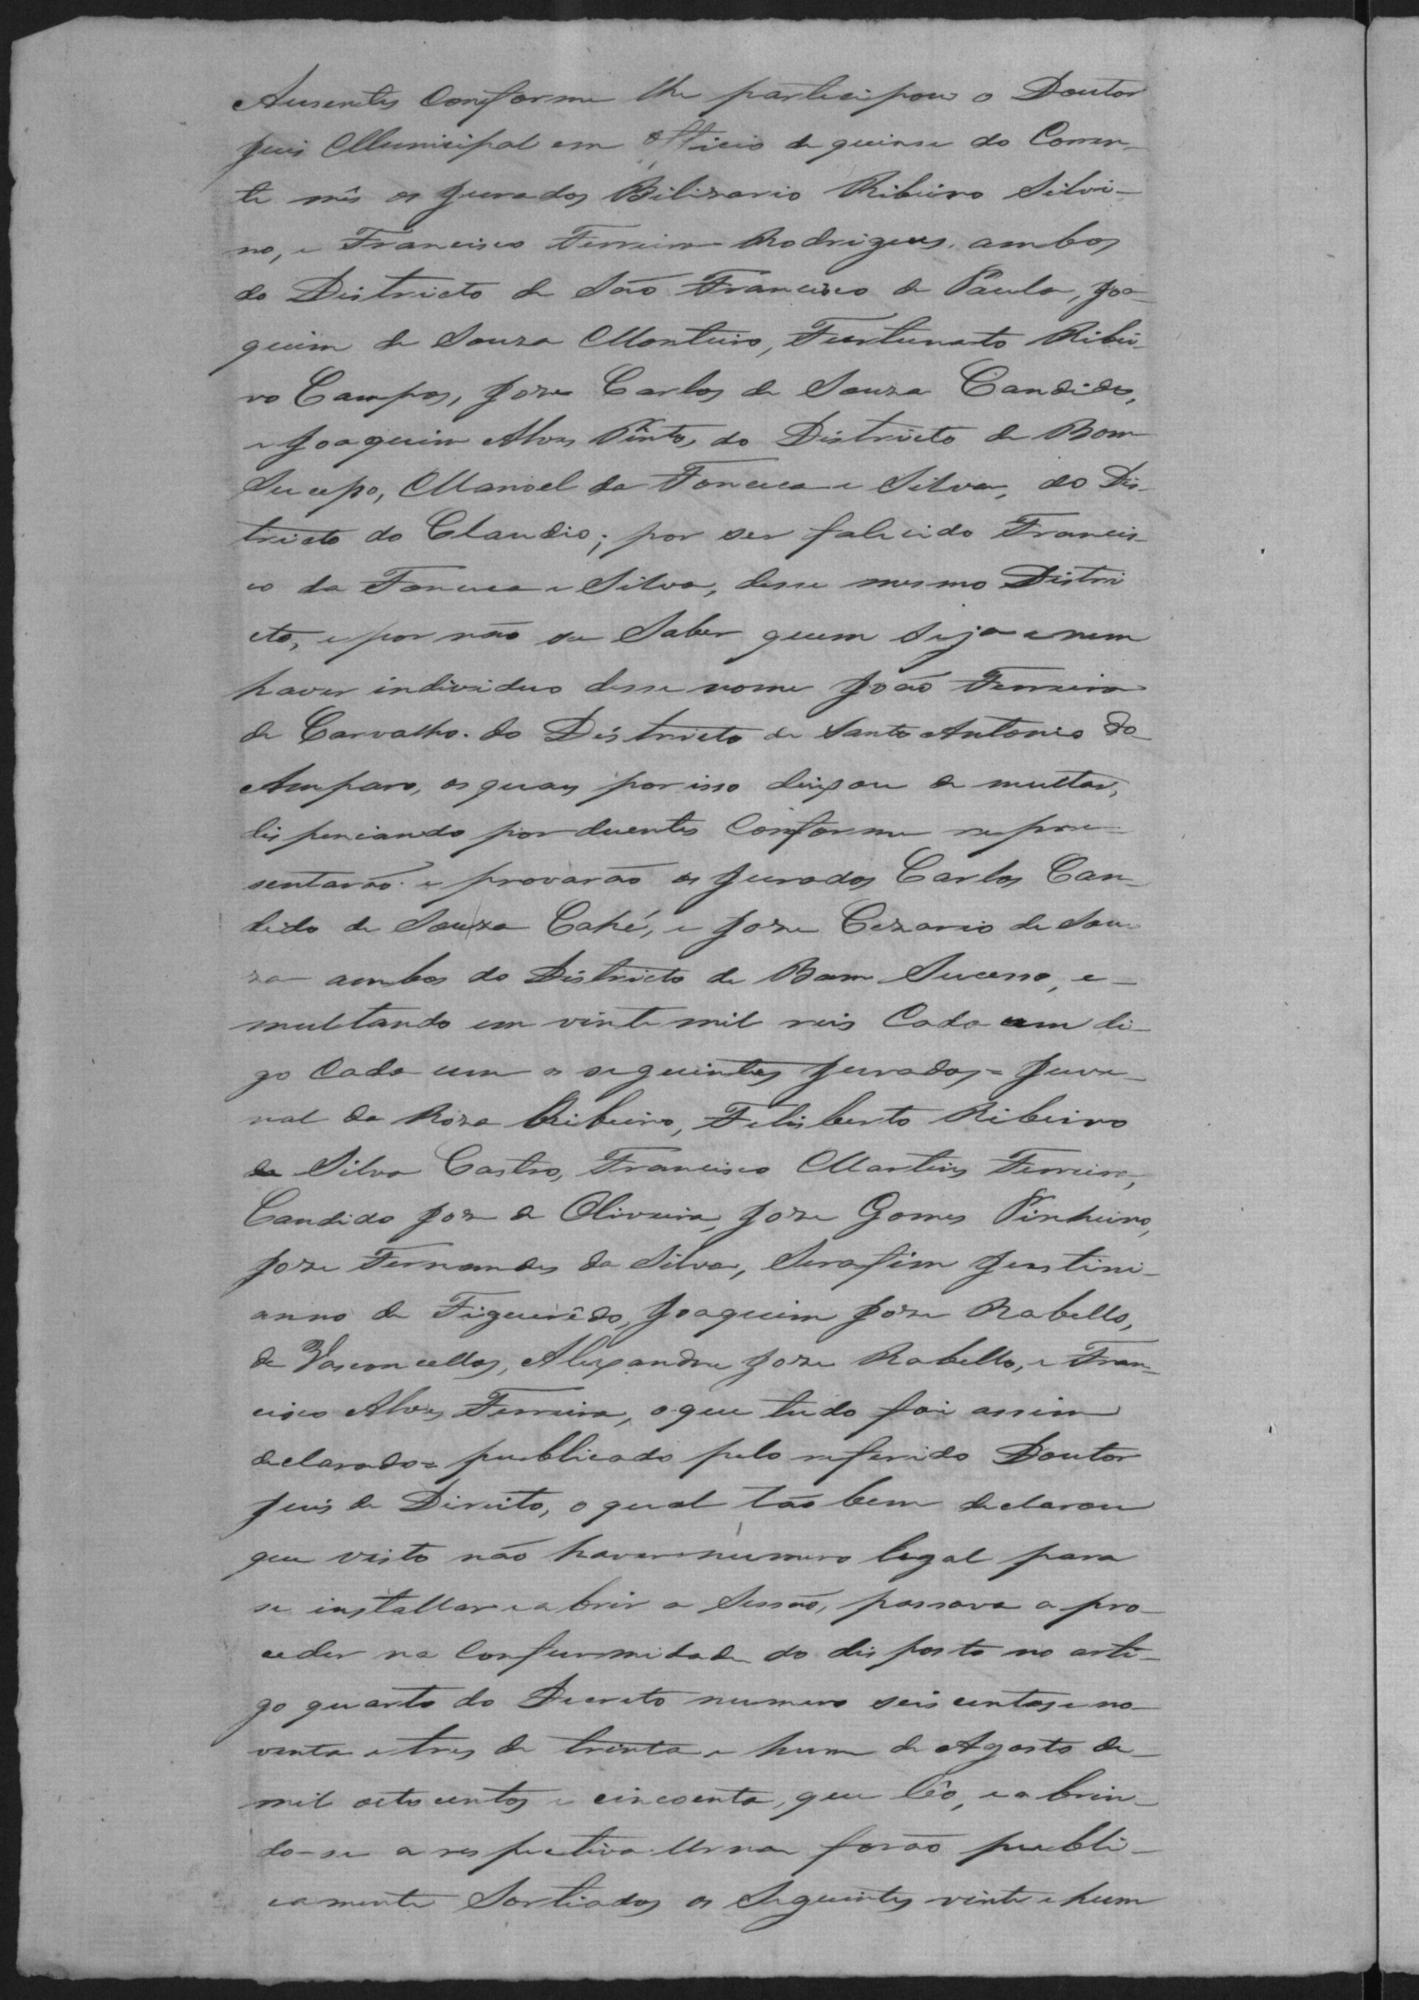 Ausentes conforme lhe participou o Doutor
Juis Municipal em officio de quinse do Corren-
te mês os Jurados Bilizario Ribeiro Silvi-
no, e Francisco Ferreira Rodrigues, ambos
do Districto de São Francisco de Paula, Joa-
quim de Souza Monteiro, Furtunato Ribei-
ro Campos, Jose Carlos de Souza Candido,
e Joaquim Alves Pinto, do Districto de Bom
Sucesso, Manoel da Fonceca e Silva, do Dis-
tricto do Claudio; por ser falicido Francis-
co da Fonceca e Silva, desse mesmo Distri
cto, e por não se Saber quem seja e nem
haver individuo desse nome João Ferreira
de Carvalho. do Districto de Santo Antonio do
Amparo, os quaes por isso deixou de multar,
dispensando por duentes Conforme repre-
sentarão e provarão os Jurados Carlos Can-
dido de Souza Cahé, e Jose Cezario de Sou
za ambos do Districto de Bom Sucesso, e
multando em vinte mil reis Cada um di-
go Cada um os seguintes Jurados = Juve-
nal da Roza Ribeiro, Felisberto Ribeiro
da Silva Castro, Francisco Martins Ferreira,
Candido Jose de Oliveira, Jose Gomes Pinheiro,
Jose Fernandes da Silva, Serafim Justini-
anno de Figueirêdo, Joaquim Jose Rabello,
de Vasconcellos, Alexandre Jose Rabello, e Fran-
cisco Alves Ferreira, o que tudo foi assim
declarado e publicado pelo referido Doutor
Juis de Direito, o qual tão bem declarou
que visto não haver numero legal para
se installar e abrir a Sessão, passava a pro-
ceder na Confurmidade do disposto no arti-
go quarto do Decreto numero seis centos e no-
venta e tres de trinta e hum de Agosto de
mil oito centos e cincoenta, que lêo, e abrin-
do-se a respectiva Urna forão publi-
camente Sortiados os Seguintes vinte e hum